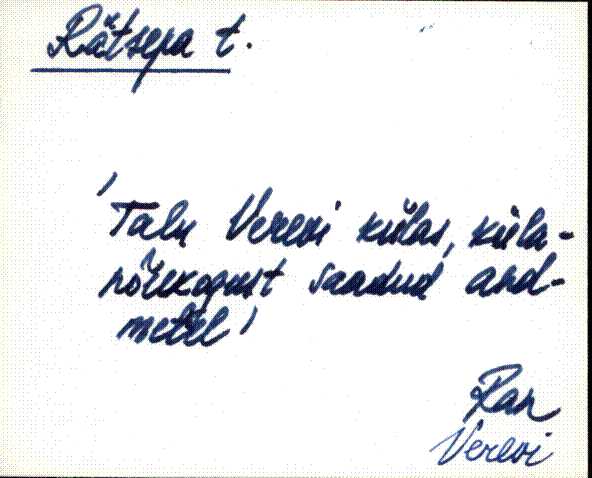 Rätsepa t.
'Talu Verevi külas, küla-
nõukogust saadud and-
metel'
Ran
Verevi